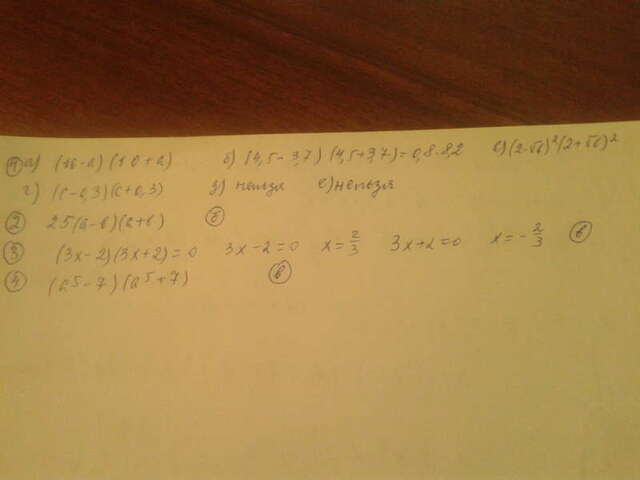 ① а) (10-a)(10+a) б) (4,5-3,7)(4,5+3,7)=0,8·8,2 в) (2-√b)²(2+√b)²
г) (c-0,3)(c+0,3) д) нельзя е) нельзя
② 25(a-b)(a+b) б
③ (3x-2)(3x+2)=0 3x-2=0 x=2/3 3x+2=0 x=-2/3 в
④ (a⁵-7)(a⁵+7) в